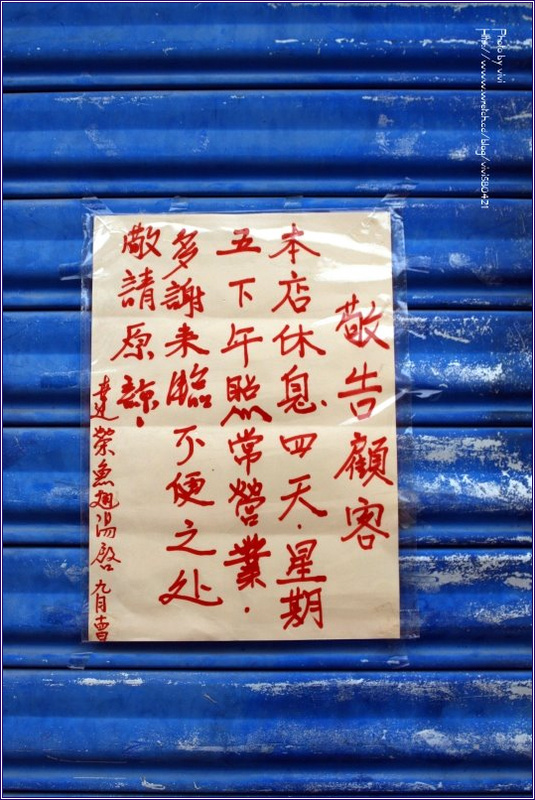 Photo by vivi
Http://www.wretch.cc/blog/vivi580421
敬告顧客
本店休息四天.星期
五下午照常營業.
多謝来臨不便之处
敬請原諒!
達榮魚翅湯啟 九月